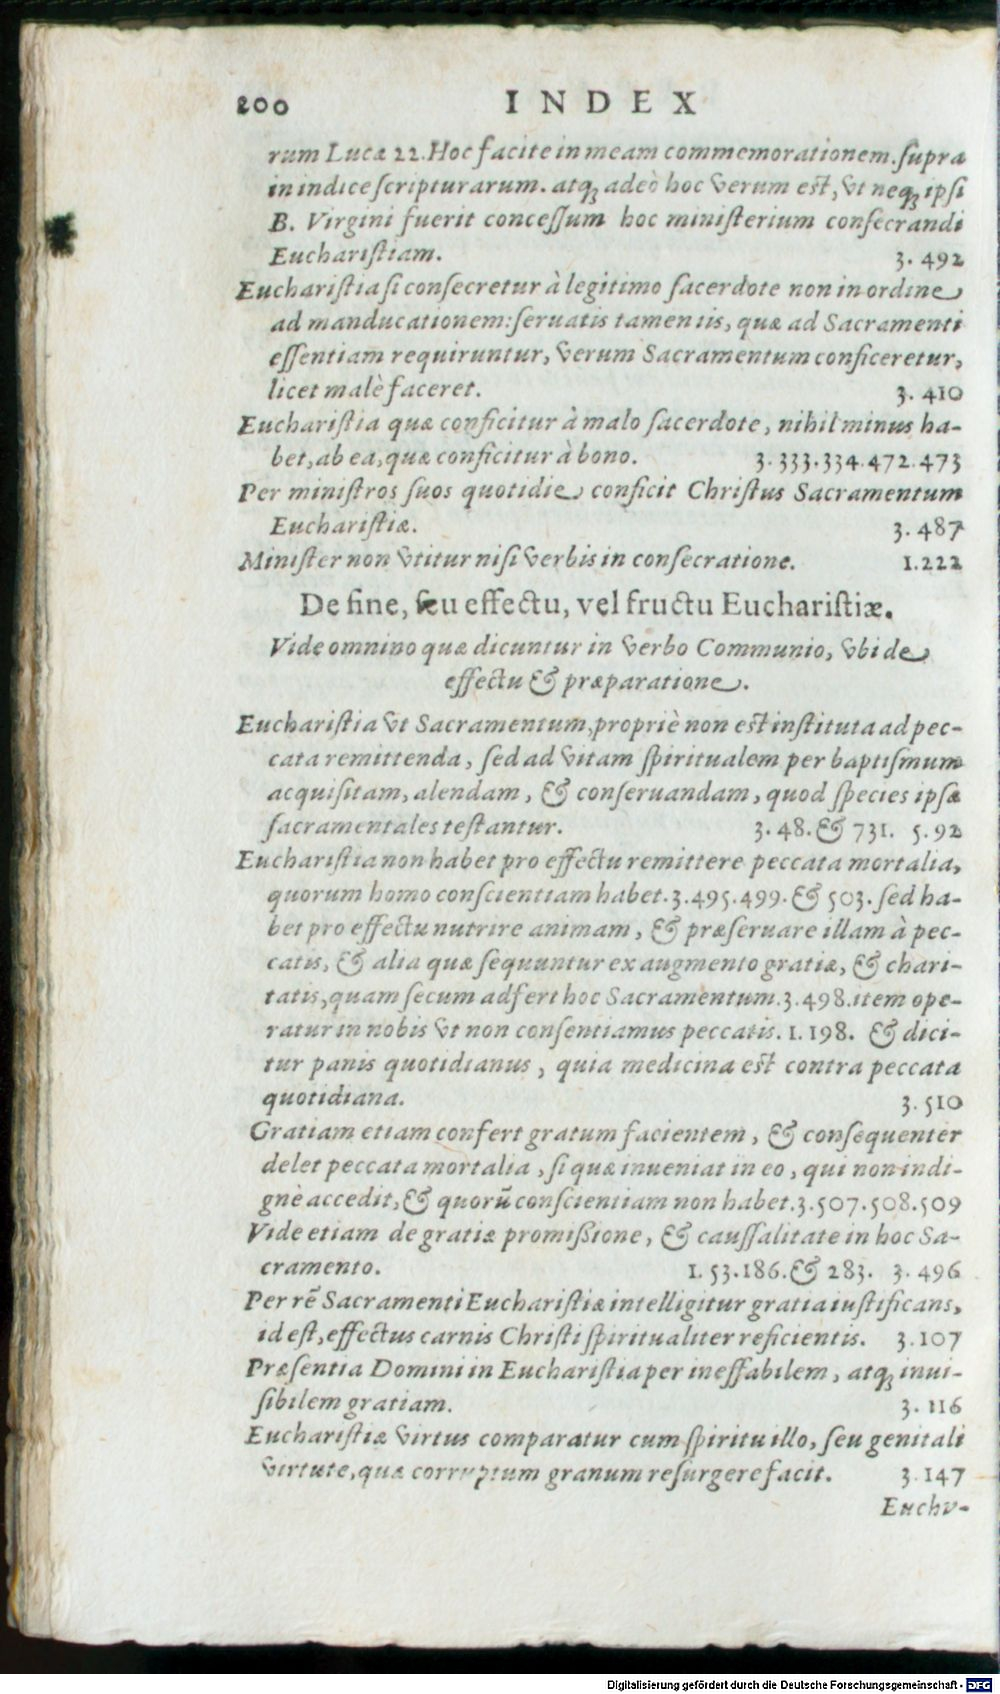 200 INDEX
rum Lucæ 22. Hoc facite in meam commemorationem. ſupra
in indice ſcripturarum. atqꝫ adeò hoc verum eſt, vt neqꝫ ipſi
B. Virgini fuerit conceſſum hoc miniſterium conſecrandi
Euchariſtiam. 3. 492
Euchariſtia ſi conſecretur à legitimo ſacerdote non in ordine
ad manducationem: ſeruatis tamen iis, quæ ad Sacramenti
eſſentiam requiruntur, verum Sacramentum conficeretur,
licet malè faceret. 3. 410
Euchariſtia quæ conficitur à malo ſacerdote, nihil minus ha-
bet, ab ea, quæ conficitur à bono. 3. 333. 334. 472. 473
Per miniſtros ſuos quotidie conficit Chriſtus Sacramentum
Euchariſtiæ. 3. 487
Miniſter non vtitur niſi verbis in conſecratione. 1. 222
De fine, ſeu effectu, vel fructu Euchariſtiæ.
Vide omnino quæ dicuntur in verbo Communio, vbi de
effectu & præparatione.
Euchariſtia vt Sacramentum, propriè non eſt inſtituta ad pec-
cata remittenda, ſed ad vitam ſpiritualem per baptiſmum
acquiſitam, alendam, & conſeruandam, quod ſpecies ipſæ
ſacramentales teſtantur. 3. 48. & 731. 5. 92
Euchariſtia non habet pro effectu remittere peccata mortalia,
quorum homo conſcientiam habet. 3. 495. 499. & 503. ſed ha-
bet pro effectu nutrire animam, & præſeruare illam à pec-
catis, & alia quæ ſequuntur ex augmento gratiæ, & chari-
tatis, quam ſecum adfert hoc Sacramentum. 3. 498. item ope-
ratur in nobis vt non conſentiamus peccatis. 1. 198. & dici-
tur panis quotidianus, quia medicina eſt contra peccata
quotidiana. 3. 510
Gratiam etiam confert gratum facientem, & conſequenter
delet peccata mortalia, ſi quæ inueniat in eo, qui non indi-
gnè accedit, & quorū conſcientiam non habet. 3. 507. 508. 509
Vide etiam de gratiæ promiſſione, & cauſſalitate in hoc Sa-
cramento. 1. 53. 186. & 283. 3. 496
Per rē Sacramenti Euchariſtiæ intelligitur gratia iuſtificans,
id eſt, effectus carnis Chriſti ſpiritualiter reficientis. 3. 107
Præſentia Domini in Euchariſtia per ineffabilem, atqꝫ inui-
ſibilem gratiam. 3. 116
Euchariſtiæ virtus comparatur cum ſpiritu illo, ſeu genitali
virtute, quæ corruptum granum reſurgere facit. 3. 147
Euchv-
Digitalisierung gefördert durch die Deutsche Forschungsgemeinschaft - DFG